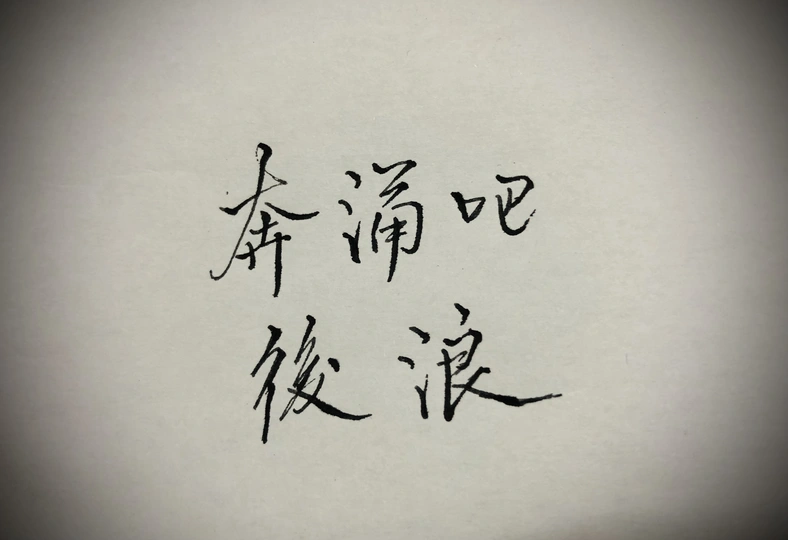 奔涌吧
後浪